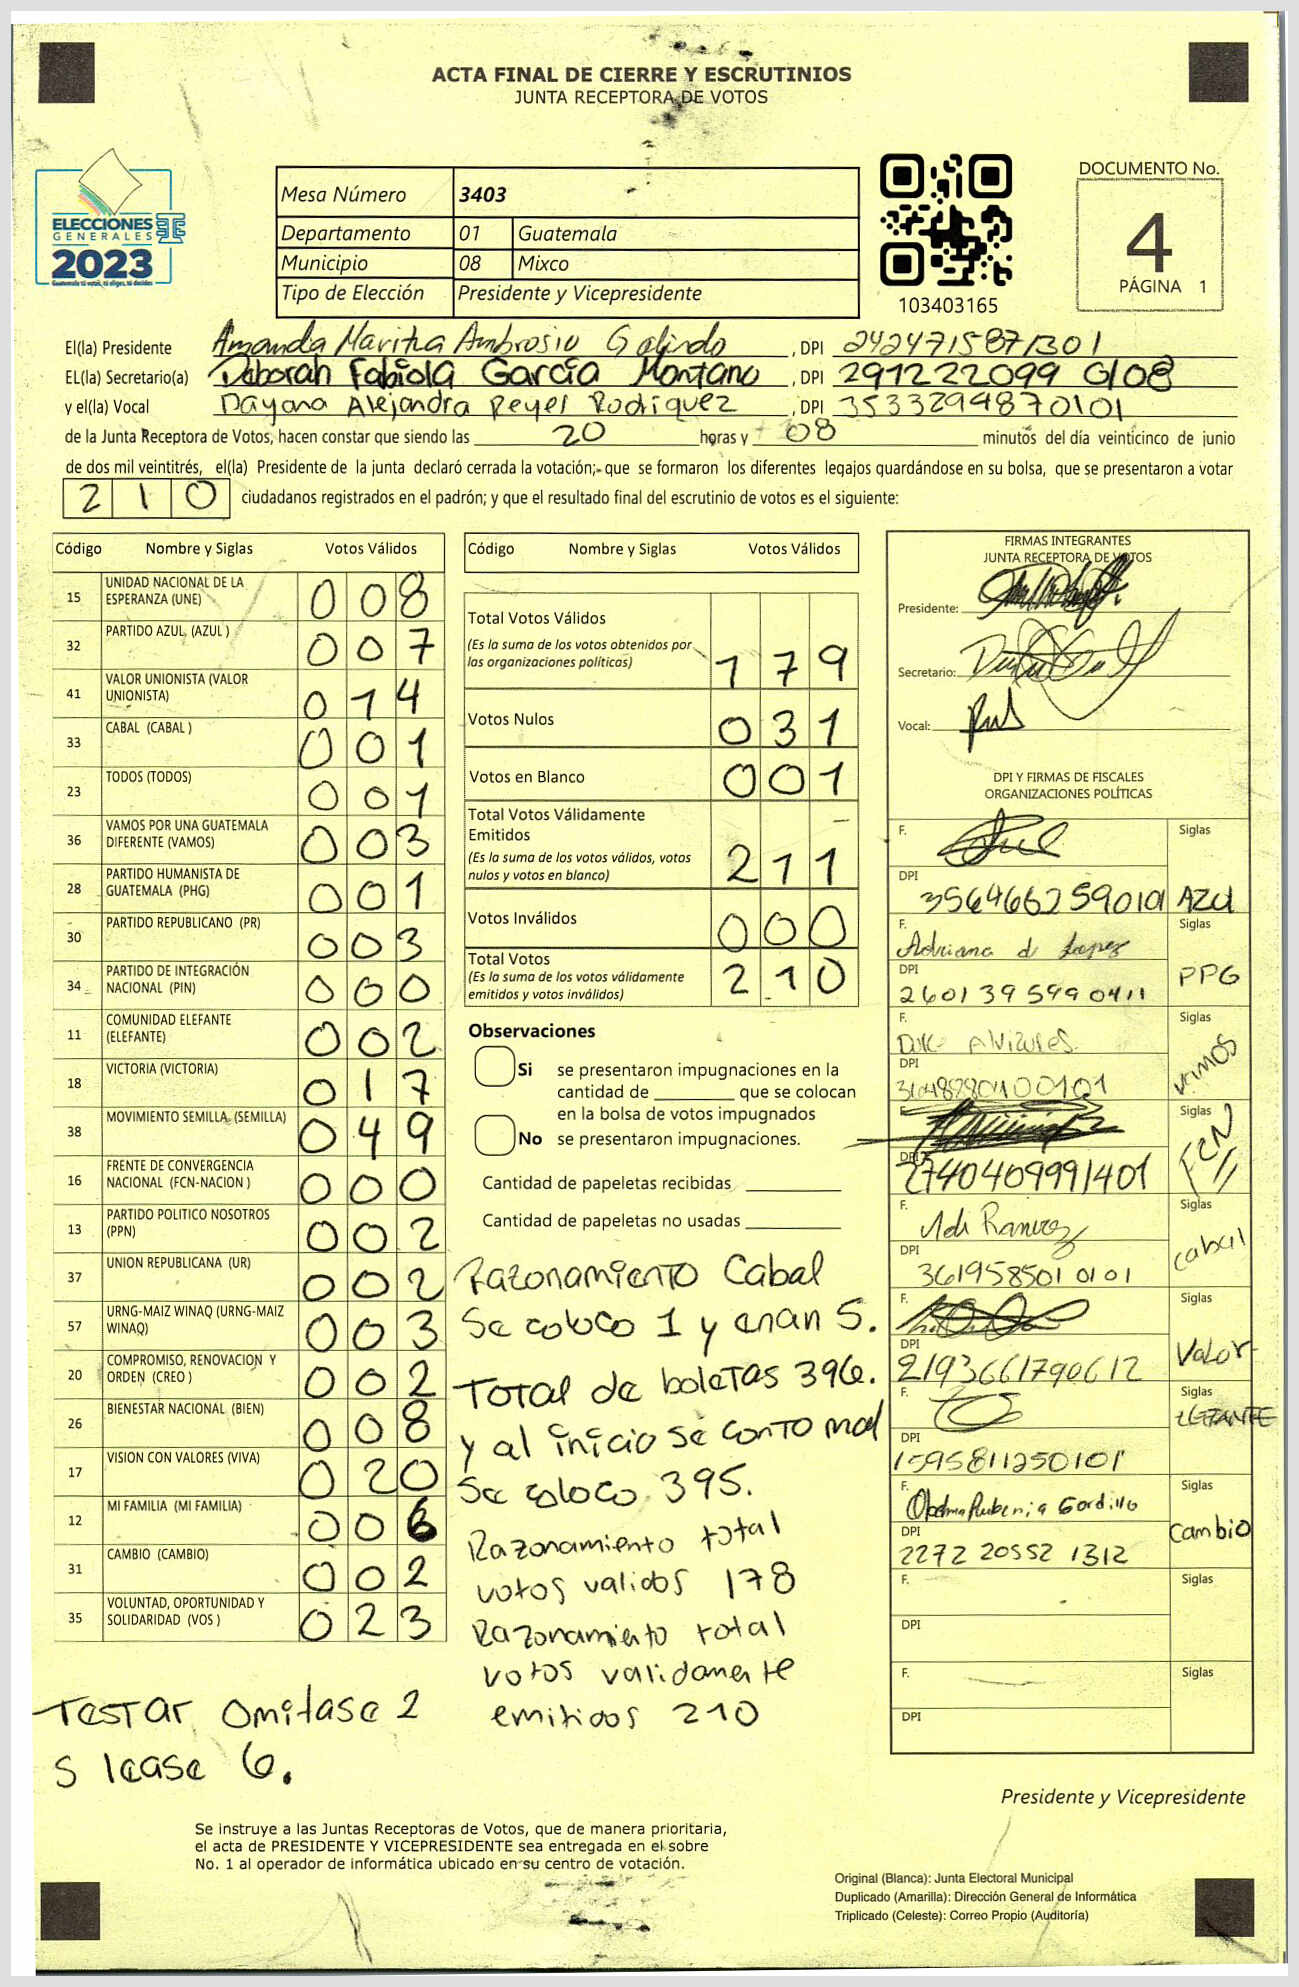 ACTA FINAL DE CIERRE Y ESCRUTINIOS
JUNTA RECEPTORA DE VOTOS
ELECCIONES
GENERALES
2023
Guatemala tú votas, tú eliges, tú decides
Mesa Número 3403
Departamento 01 Guatemala
Municipio 08 Mixco
Tipo de Elección Presidente y Vicepresidente
103403165
DOCUMENTO No.
4
PÁGINA 1
El(la) Presidente Amanda Maritza Ambrosio Galindo, DPI 2424715871301
EL(la) Secretario(a) Deborah Fabiola García Montano, DPI 291222099 0108
y el(la) Vocal Dayana Alejandra Reyes Rodriguez, DPI 3533294870101
de la Junta Receptora de Votos, hacen constar que siendo las 20 horas y 08 minutos del día veinticinco de junio
de dos mil veintitrés, el(la) Presidente de la junta declaró cerrada la votación; que se formaron los diferentes legajos guardándose en su bolsa, que se presentaron a votar
210 ciudadanos registrados en el padrón; y que el resultado final del escrutinio de votos es el siguiente:
Código Nombre y Siglas Votos Válidos
15 UNIDAD NACIONAL DE LA ESPERANZA (UNE) 008
32 PARTIDO AZUL (AZUL ) 007
41 VALOR UNIONISTA (VALOR UNIONISTA) 014
33 CABAL (CABAL ) 001
23 TODOS (TODOS) 001
36 VAMOS POR UNA GUATEMALA DIFERENTE (VAMOS) 003
28 PARTIDO HUMANISTA DE GUATEMALA (PHG) 001
30 PARTIDO REPUBLICANO (PR) 003
34 PARTIDO DE INTEGRACIÓN NACIONAL (PIN) 000
11 COMUNIDAD ELEFANTE (ELEFANTE) 002
18 VICTORIA (VICTORIA) 017
38 MOVIMIENTO SEMILLA (SEMILLA) 049
16 FRENTE DE CONVERGENCIA NACIONAL (FCN-NACION ) 000
13 PARTIDO POLITICO NOSOTROS (PPN) 002
37 UNION REPUBLICANA (UR) 002
57 URNG-MAIZ WINAQ (URNG-MAIZ WINAQ) 003
20 COMPROMISO, RENOVACION Y ORDEN (CREO ) 002
26 BIENESTAR NACIONAL (BIEN) 008
17 VISION CON VALORES (VIVA) 020
12 MI FAMILIA (MI FAMILIA) 006
31 CAMBIO (CAMBIO) 002
35 VOLUNTAD, OPORTUNIDAD Y SOLIDARIDAD (VOS ) 023
Testar Omitase 2
s lease 6.
Código Nombre y Siglas Votos Válidos
Total Votos Válidos
(Es la suma de los votos obtenidos por
las organizaciones políticas) 179
Votos Nulos 031
Votos en Blanco 001
Total Votos Válidamente
Emitidos
(Es la suma de los votos válidos, votos
nulos y votos en blanco) 211
Votos Inválidos 000
Total Votos
(Es la suma de los votos válidamente
emitidos y votos inválidos) 210
Observaciones
Si se presentaron impugnaciones en la
cantidad de que se colocan
en la bolsa de votos impugnados
No se presentaron impugnaciones.
Cantidad de papeletas recibidas
Cantidad de papeletas no usadas
Razonamiento Cabal
Se coloco 1 y eran 5.
Total de boletas 396.
y al inicio se conto mal
Se coloco 395.
Razonamiento total
votos validos 178
Razonamiento total
votos validamente
emitidos 210
FIRMAS INTEGRANTES
JUNTA RECEPTORA DE VOTOS
Presidente:
Secretario:
Vocal:
DPI Y FIRMAS DE FISCALES
ORGANIZACIONES POLÍTICAS
F. Siglas
DPI 3564662590101 AZUL
F. Adriana d Lopez Siglas
DPI 2601395990411 PPG
F. Siglas
DPI VAMOS
F. Siglas
DPI 2740409991401 FCN
F. Ramirez Siglas
DPI 3619585010101 cabal
F. Siglas
DPI 2193661790612 Valor
F. Siglas
DPI 1595811250101 ELEFANTE
F. Gordillo Siglas
DPI 2272 20552 1312 Cambio
F. Siglas
DPI
F. Siglas
DPI
Presidente y Vicepresidente
Se instruye a las Juntas Receptoras de Votos, que de manera prioritaria,
el acta de PRESIDENTE Y VICEPRESIDENTE sea entregada en el sobre
No. 1 al operador de informática ubicado en su centro de votación.
Original (Blanca): Junta Electoral Municipal
Duplicado (Amarilla): Dirección General de Informática
Triplicado (Celeste): Correo Propio (Auditoría)